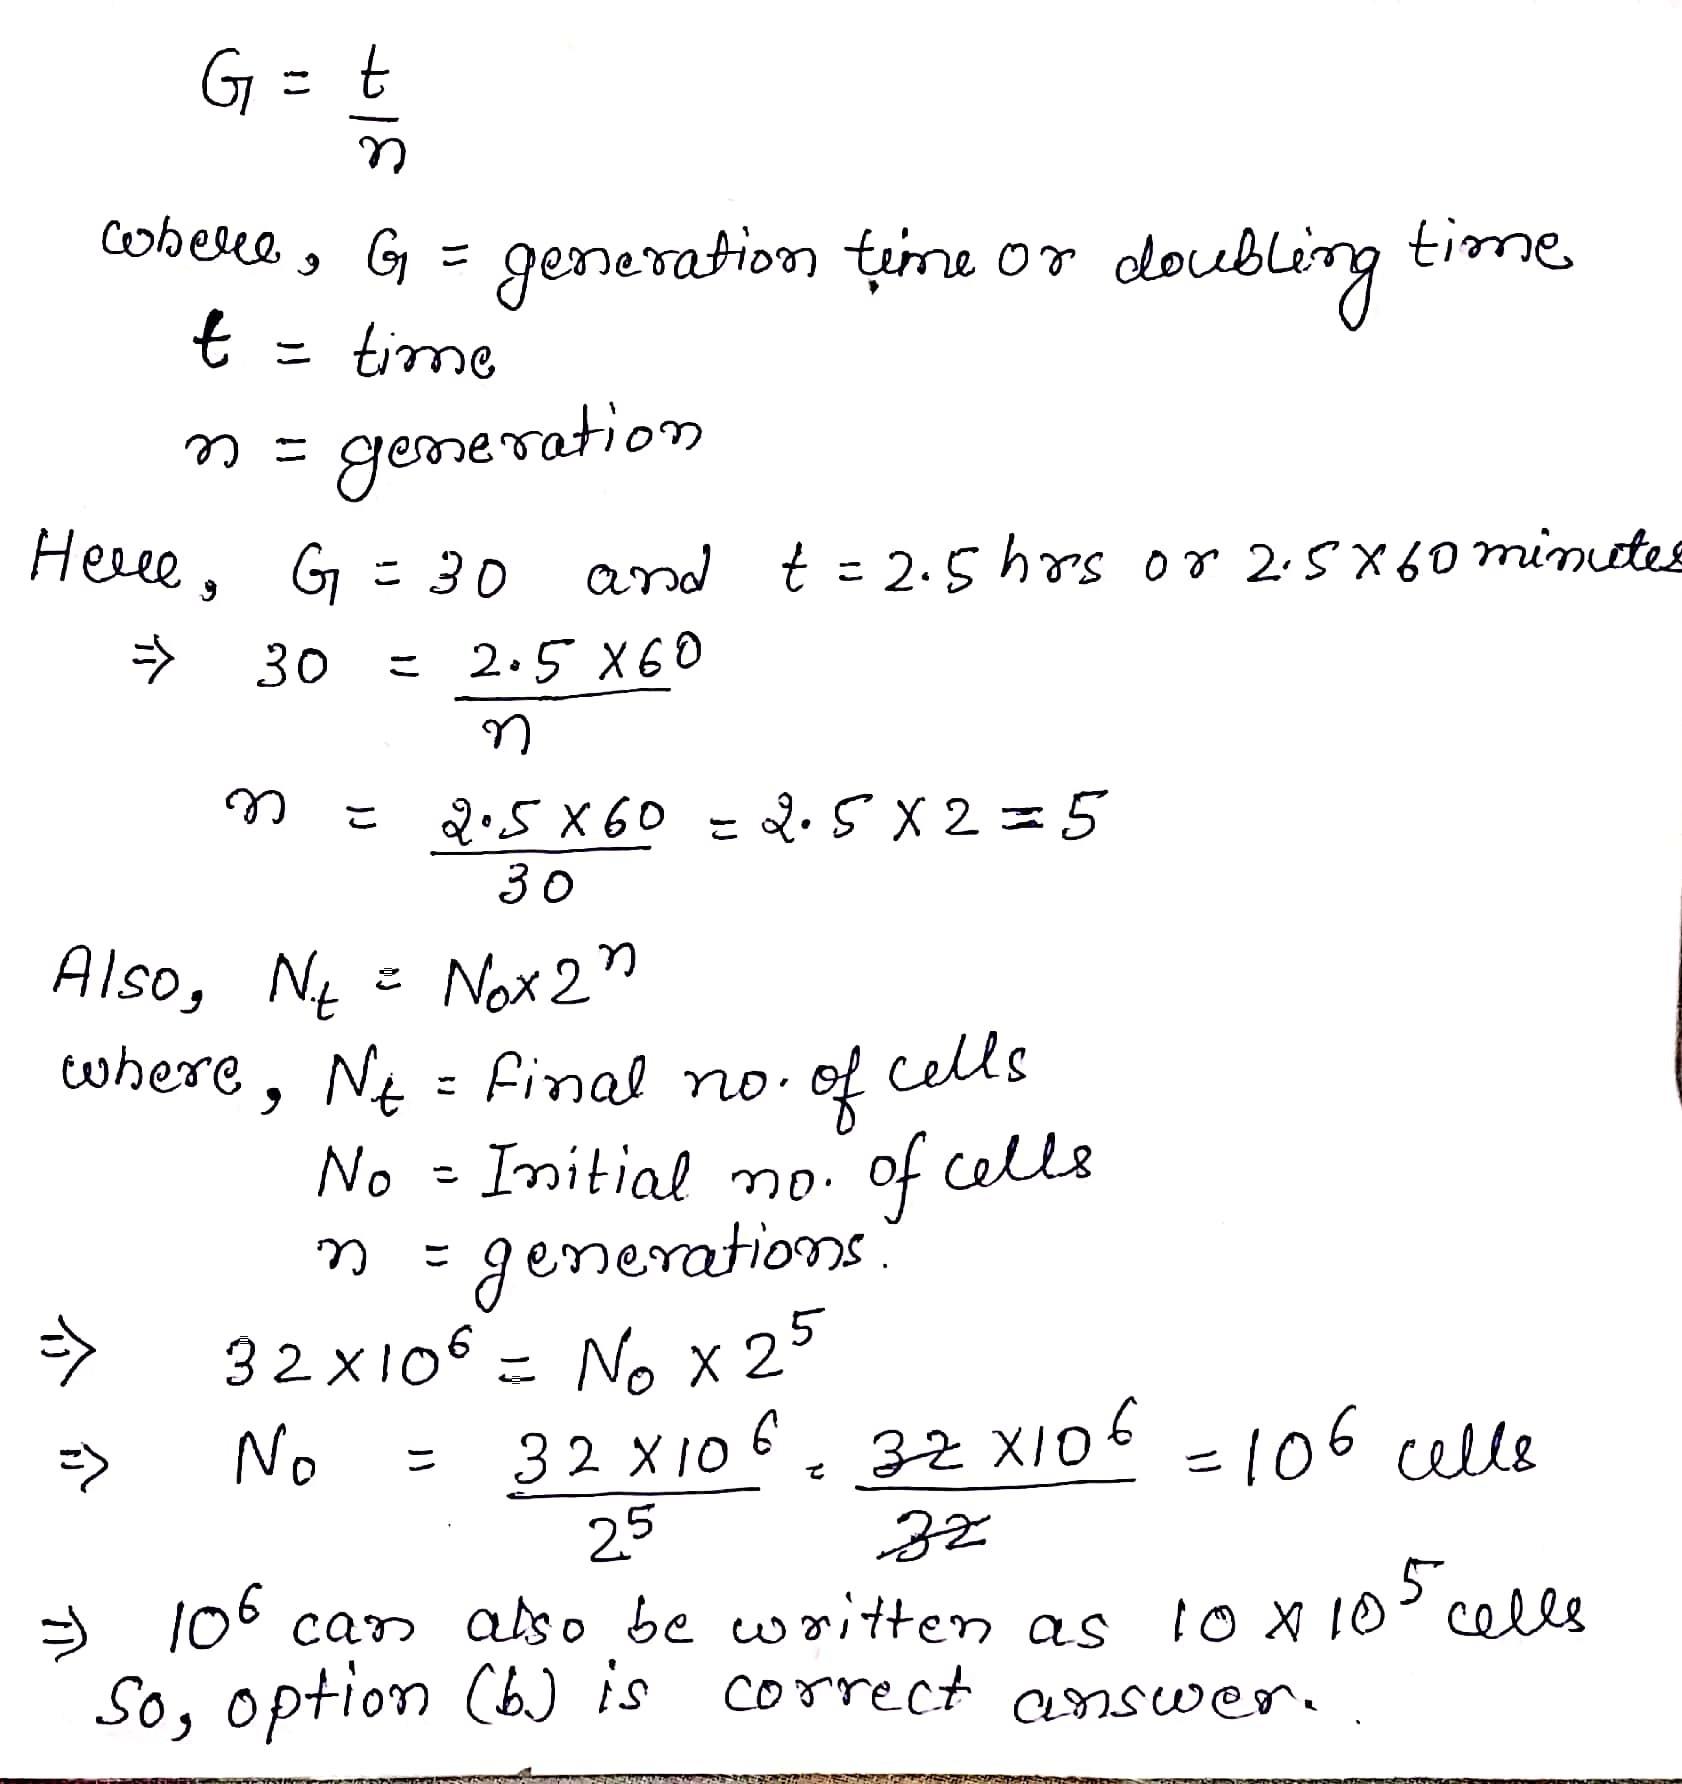 G = t/n
where, G = generation time or doubling time
t = time
n = generation
Here, G = 30 and t = 2.5 hrs or 2.5 X 60 minutes
⇒ 30 = 2.5 X 60 / n
n = 2.5 X 60 / 30 = 2.5 X 2 = 5
Also, Nt = No x 2^n
where, Nt = final no. of cells
No = Initial no. of cells
n = generations.
⇒ 32 x 10^6 = No x 2^5
⇒ No = 32 X 10^6 / 2^5 = 32 X 10^6 / 32 = 10^6 cells
⇒ 10^6 can also be written as 10 x 10^5 cells
So, option (b) is correct answer.